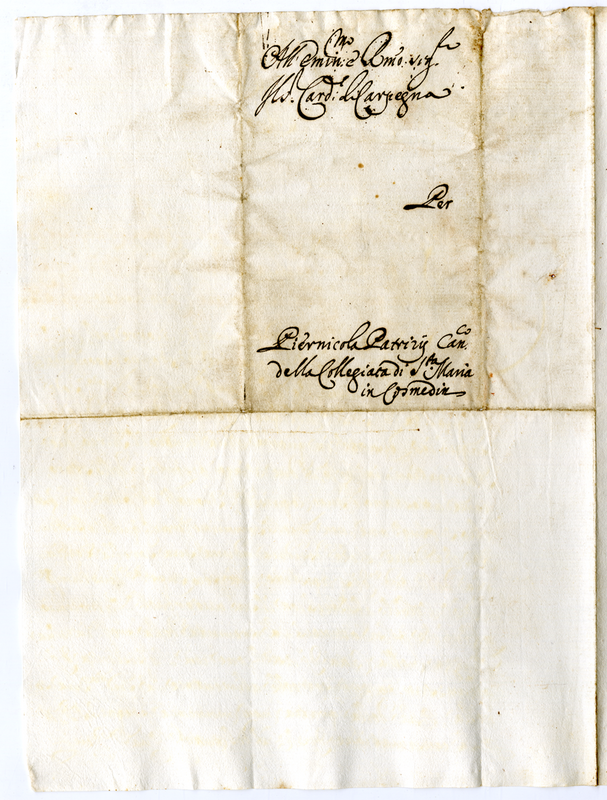 All' Emin:mo e Rmo Sig.re
Il Sr. Card:le di Carpegna
Per
Piernicola Patrizij Can.co
della Collegiata di S.ta Maria
in Cosmedin